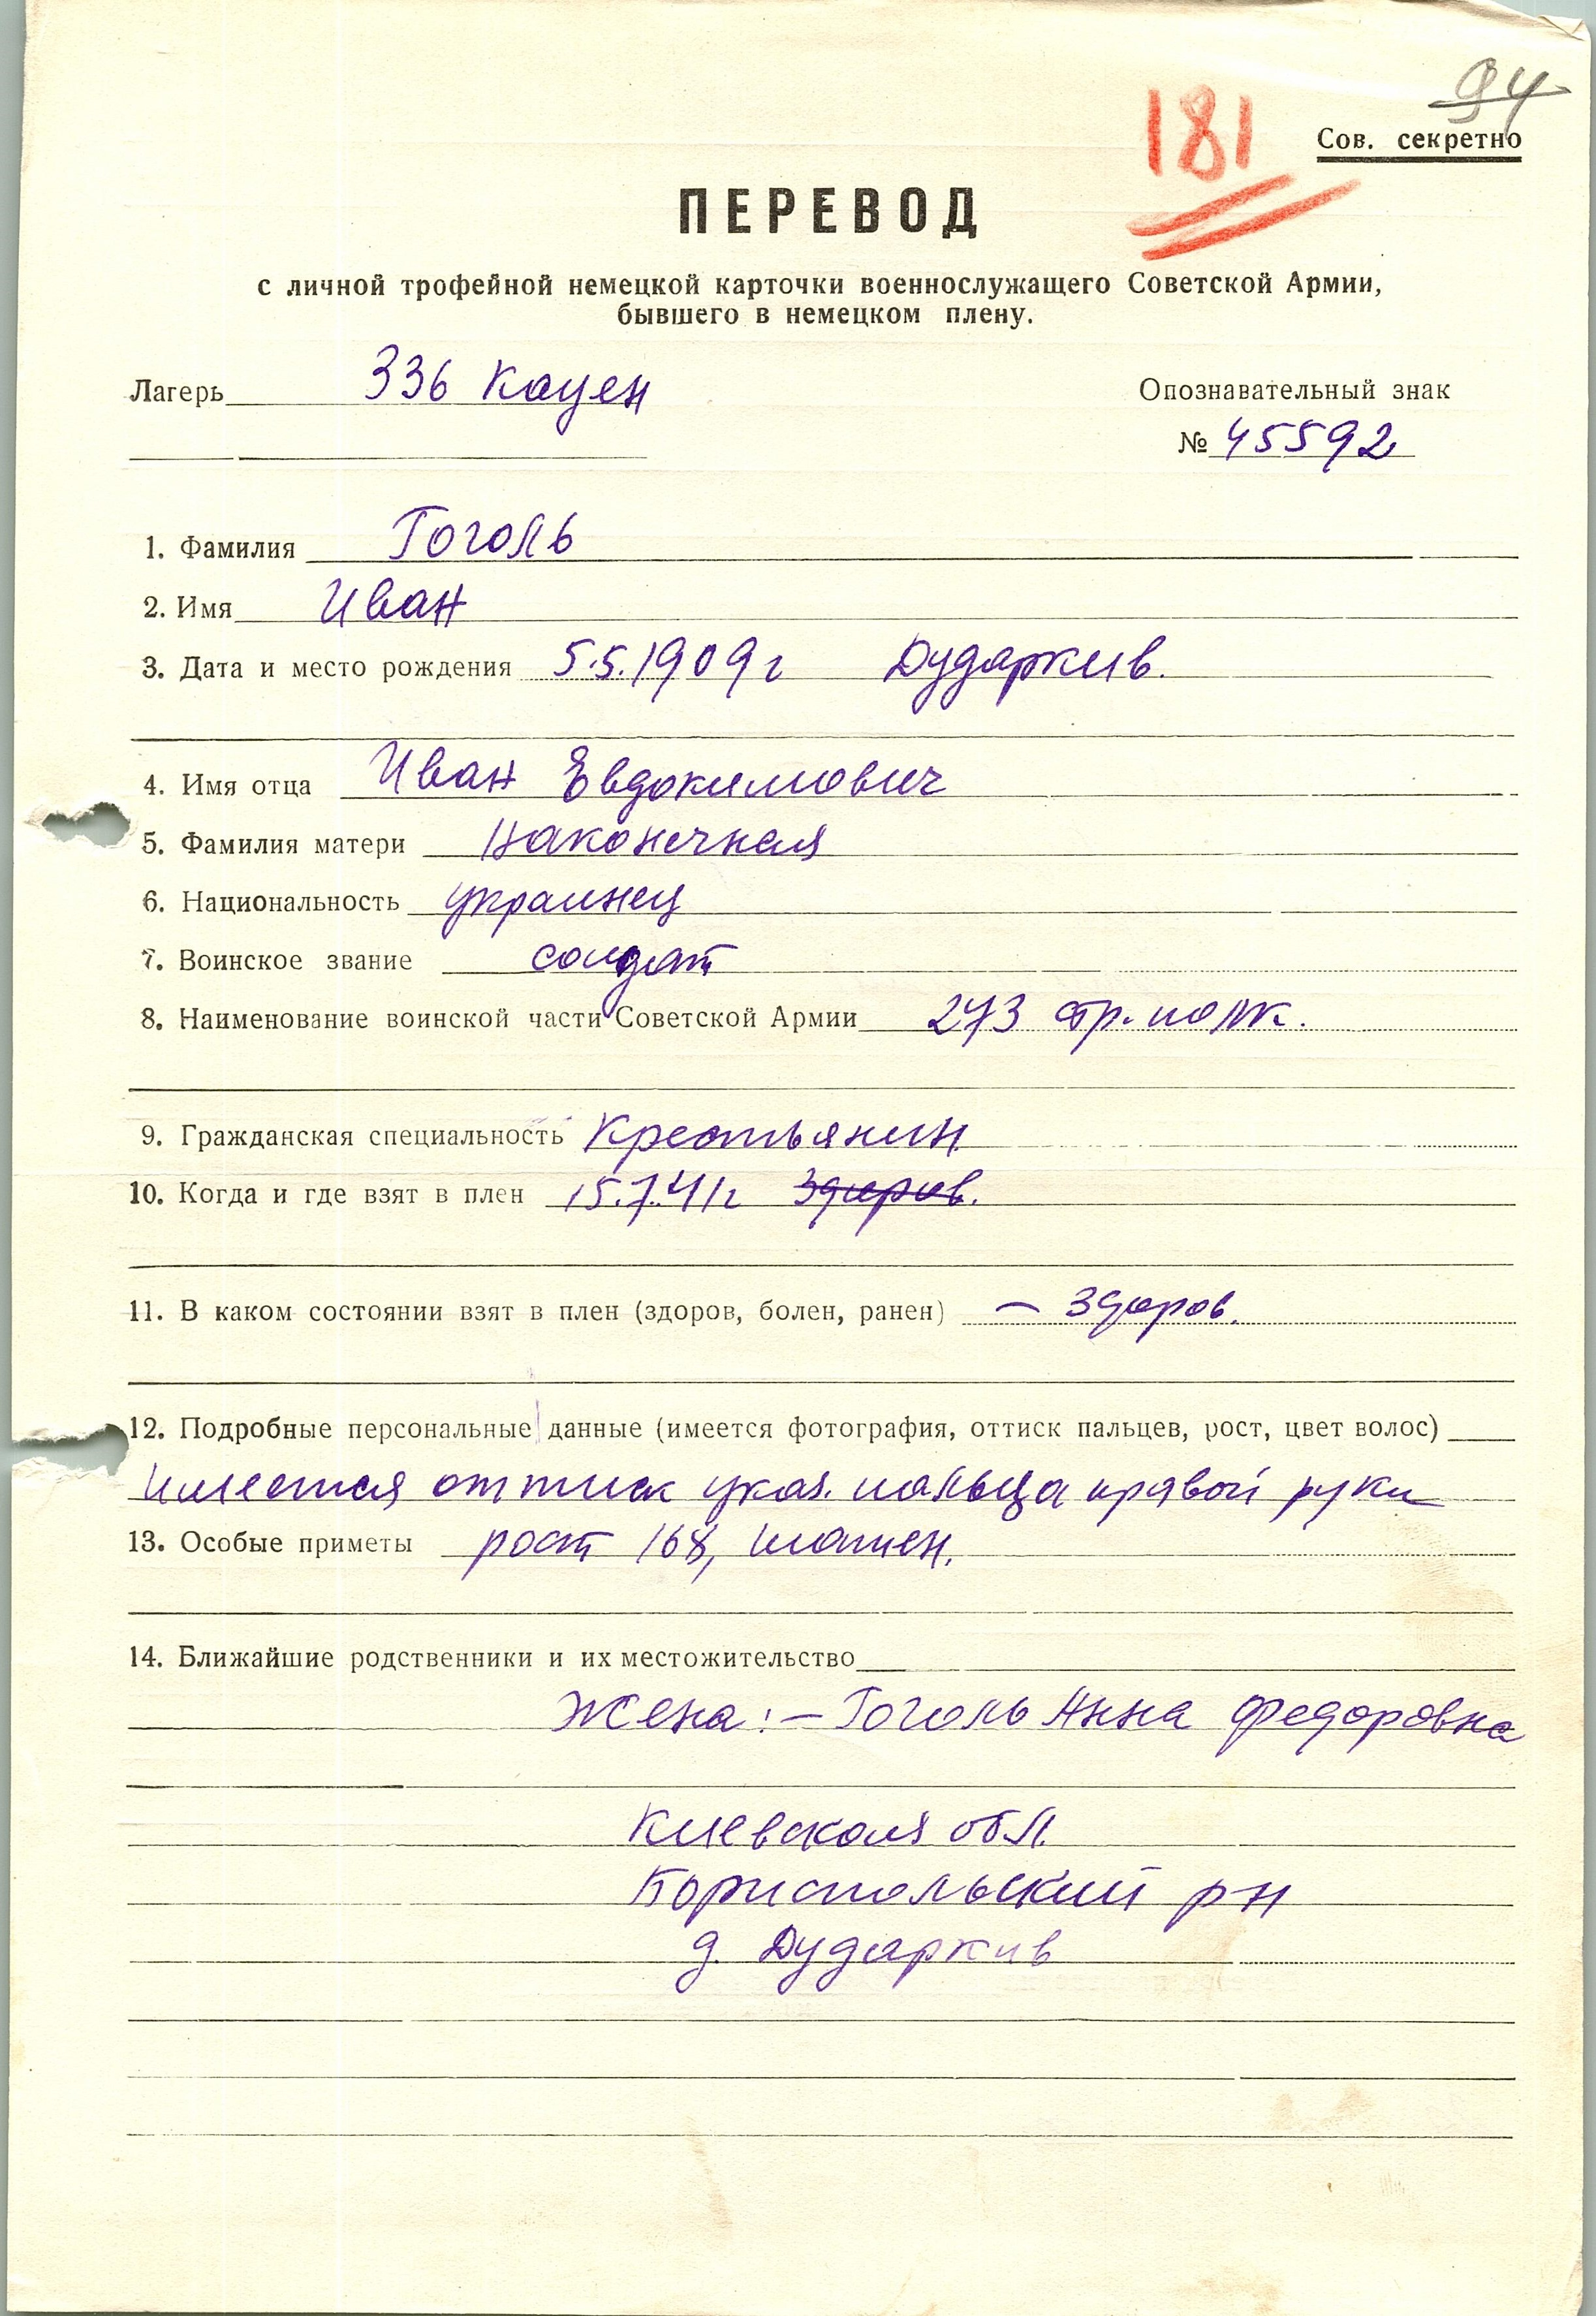 94
181
Сов. секретно
ПЕРЕВОД
с личной трофейной немецкой карточки военнослужащего Советской Армии,
бывшего в немецком плену.
Лагерь 336 Кауен
Опознавательный знак
№ 45592
1. Фамилия Гоголь
2. Имя Иван
3. Дата и место рождения 5.5.1909 г Дударкив.
4. Имя отца Иван Евдокимович
5. Фамилия матери Наконечная
6. Национальность украинец
7. Воинское звание солдат
8. Наименование воинской части Советской Армии 273 стр. полк.
9. Гражданская специальность Крестьянин
10. Когда и где взят в плен 15.7.41 г Здоров.
11. В каком состоянии взят в плен (здоров, болен, ранен) — Здоров.
12. Подробные персональные данные (имеется фотография, оттиск пальцев, рост, цвет волос)
Имеется оттиск указ. пальца правой руки
13. Особые приметы рост 168, шатен.
14. Ближайшие родственники и их местожительство
Жена: — Гоголь Анна Федоровна
Киевская обл.
Бориспольский рн
д. Дударкив